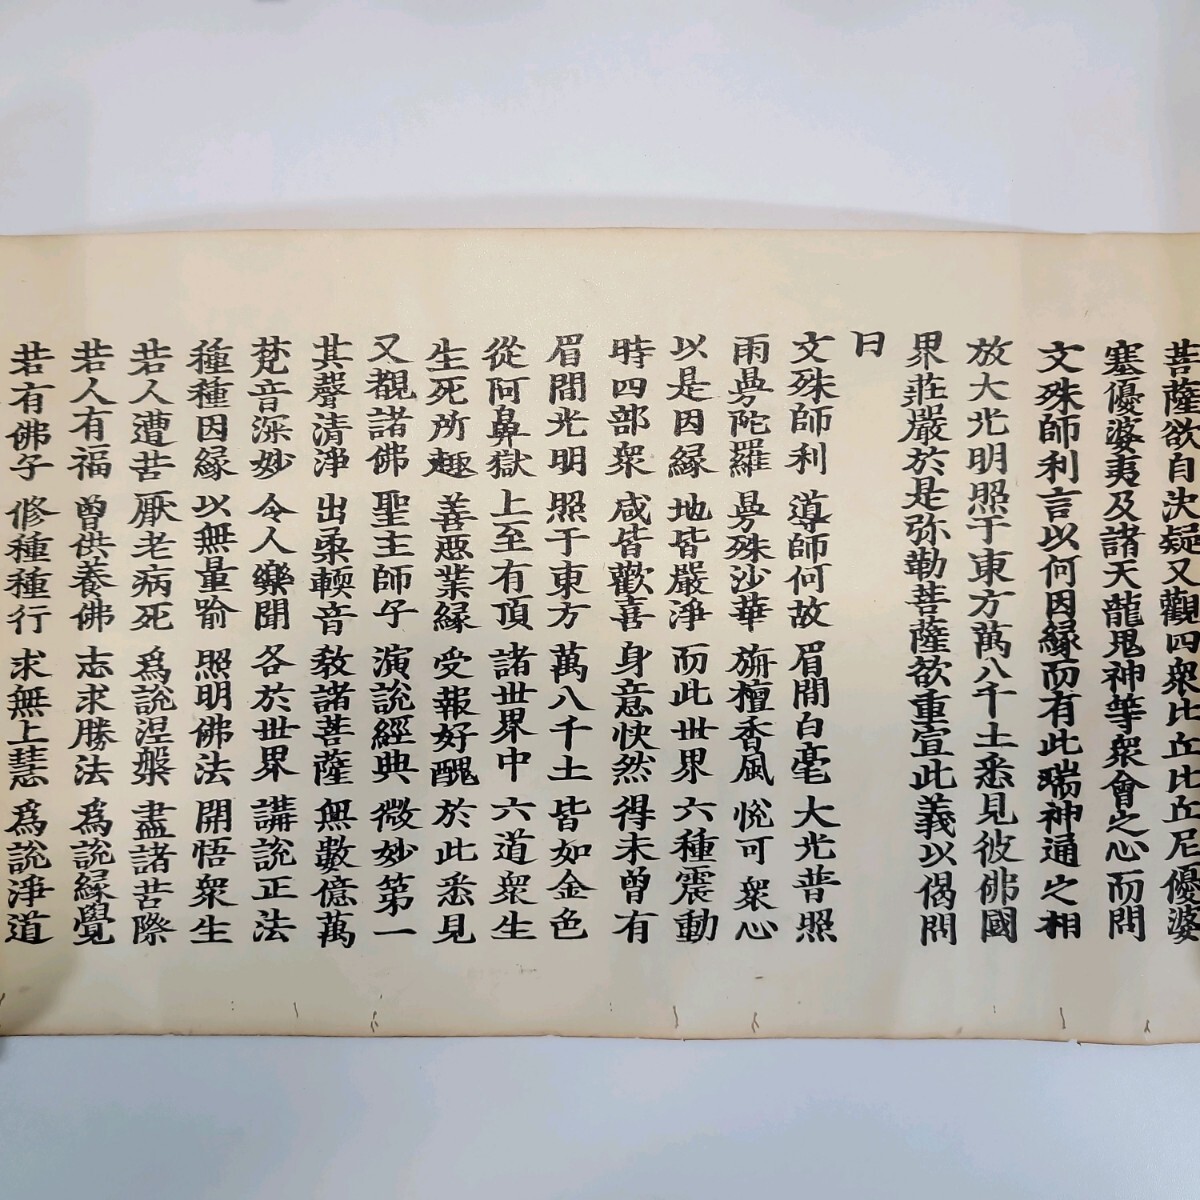 菩薩欲自決疑又觀四衆比丘比丘尼優婆
塞優婆夷及諸天龍鬼神等衆會之心而問
文殊師利言以何因縁而有此瑞神通之相
放大光明照于東方萬八千土悉見彼佛國
界莊嚴於是弥勒菩薩欲重宣此義以偈問
曰
文殊師利 導師何故 眉間白毫 大光普照
雨曼陀羅 曼殊沙華 旃檀香風 悅可衆心
以是因縁 地皆嚴淨 而此世界 六種震動
時四部衆 咸皆歡喜 身意快然 得未曾有
眉間光明 照于東方 萬八千土 皆如金色
從阿鼻獄 上至有頂 諸世界中 六道衆生
生死所趣 善惡業縁 受報好醜 於此悉見
又覩諸佛 聖主師子 演說經典 微妙第一
其聲清淨 出柔輭音 敎諸菩薩 無數億萬
梵音深妙 令人樂聞 各於世界 講說正法
種種因縁 以無量喻 照明佛法 開悟衆生
若人遭苦 厭老病死 爲說涅槃 盡諸苦際
若人有福 曾供養佛 志求勝法 爲說縁覺
若有佛子 修種種行 求無上慧 爲說淨道